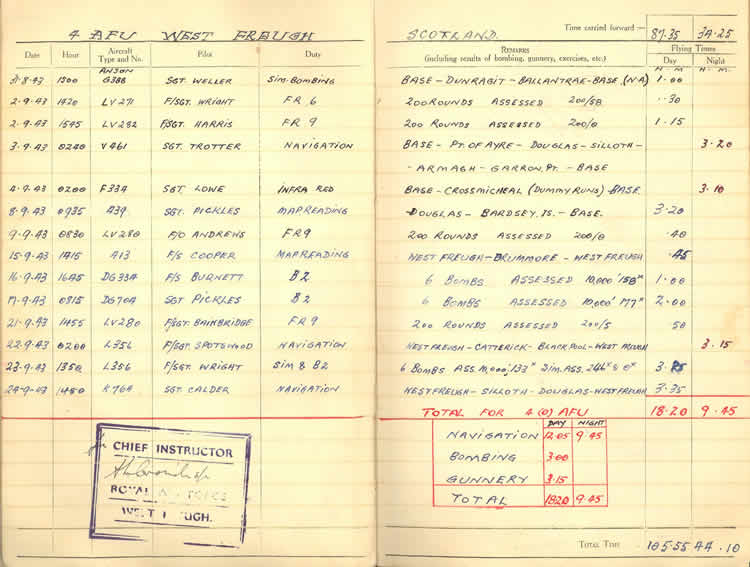 4 AFU WEST FREUGH SCOTLAND. Time carried forward:— 87.35 34.25
Date Hour Aircraft Type and No. Pilot Duty REMARKS (including results of bombing, gunnery, exercises, etc.) Flying Times Day Night
H. M. H. M.
31.8.43 1500 ANSON G388 SGT. WELLER SIM. BOMBING BASE – DUNRAGIT – BALLANTRAE – BASE. (N A) 1.00
2.9.43 1420 LV271 F/SGT. WRIGHT FR 6 200 ROUNDS ASSESSED 200/58 .30
2.9.43 1545 LV282 F/SGT. HARRIS FR 9 200 ROUNDS ASSESSED 200/0 1.15
3.9.43 0240 V461 SGT. TROTTER NAVIGATION BASE – PT. OF AYRE – DOUGLAS – SILLOTH – 3.20
– ARMAGH – GARRON. PT. – BASE
4.9.43 0200 F334 SGT. LOWE INFRA RED BASE – CROSSMICHEAL (DUMMY RUNS) – BASE. 3.10
8.9.43 0935 A39. SGT. PICKLES MAPREADING – DOUGLAS – BARDSEY. IS. – BASE. 3.20
9.9.43 0830 LV280 F/O ANDREWS FR9 200 ROUNDS ASSESSED 200/0 .40
15.9.43 1415 A13 F/S COOPER MAPREADING WEST FREUGH – DRUMMORE – WEST FREUGH .45
16.9.43 1645 DG33A F/S BURNETT B2 6 BOMBS ASSESSED 10,000' 158ˣ 1.00
17.9.43 0815 DG70A SGT PICKLES B2 6 BOMBS ASSESSED 10,000' 177ˣ 2.00
21.9.43 1455 LV280 F/SGT. BAINBRIDGE FR9 200 ROUNDS ASSESSED 200/5 50
22.9.43 0200 L356 F/SGT. SPOTSWOOD NAVIGATION WEST FREUGH – CATTERICK – BLACKPOOL – WEST FREUGH 3.15
23.9.43 1350 L356 F/SGT. WRIGHT SIM & B2 6 BOMBS ASS. 10,000' 133ˣ SIM. ASS. 246ˣ & 0ˣ
24.9.43 1450 K764 SGT. CALDER NAVIGATION WEST FREUGH – SILLOTH – DOUGLAS – WEST FREUGH 3.35
TOTAL FOR 4 (O) AFU 18.20 9.45
DAY NIGHT
NAVIGATION 12.05 9.45
BOMBING 3.00
GUNNERY 3.15
TOTAL 18.20 9.45
for CHIEF INSTRUCTOR
ROYAL AIR FORCE
WEST FREUGH.
TOTAL TIME 105.55 44.10